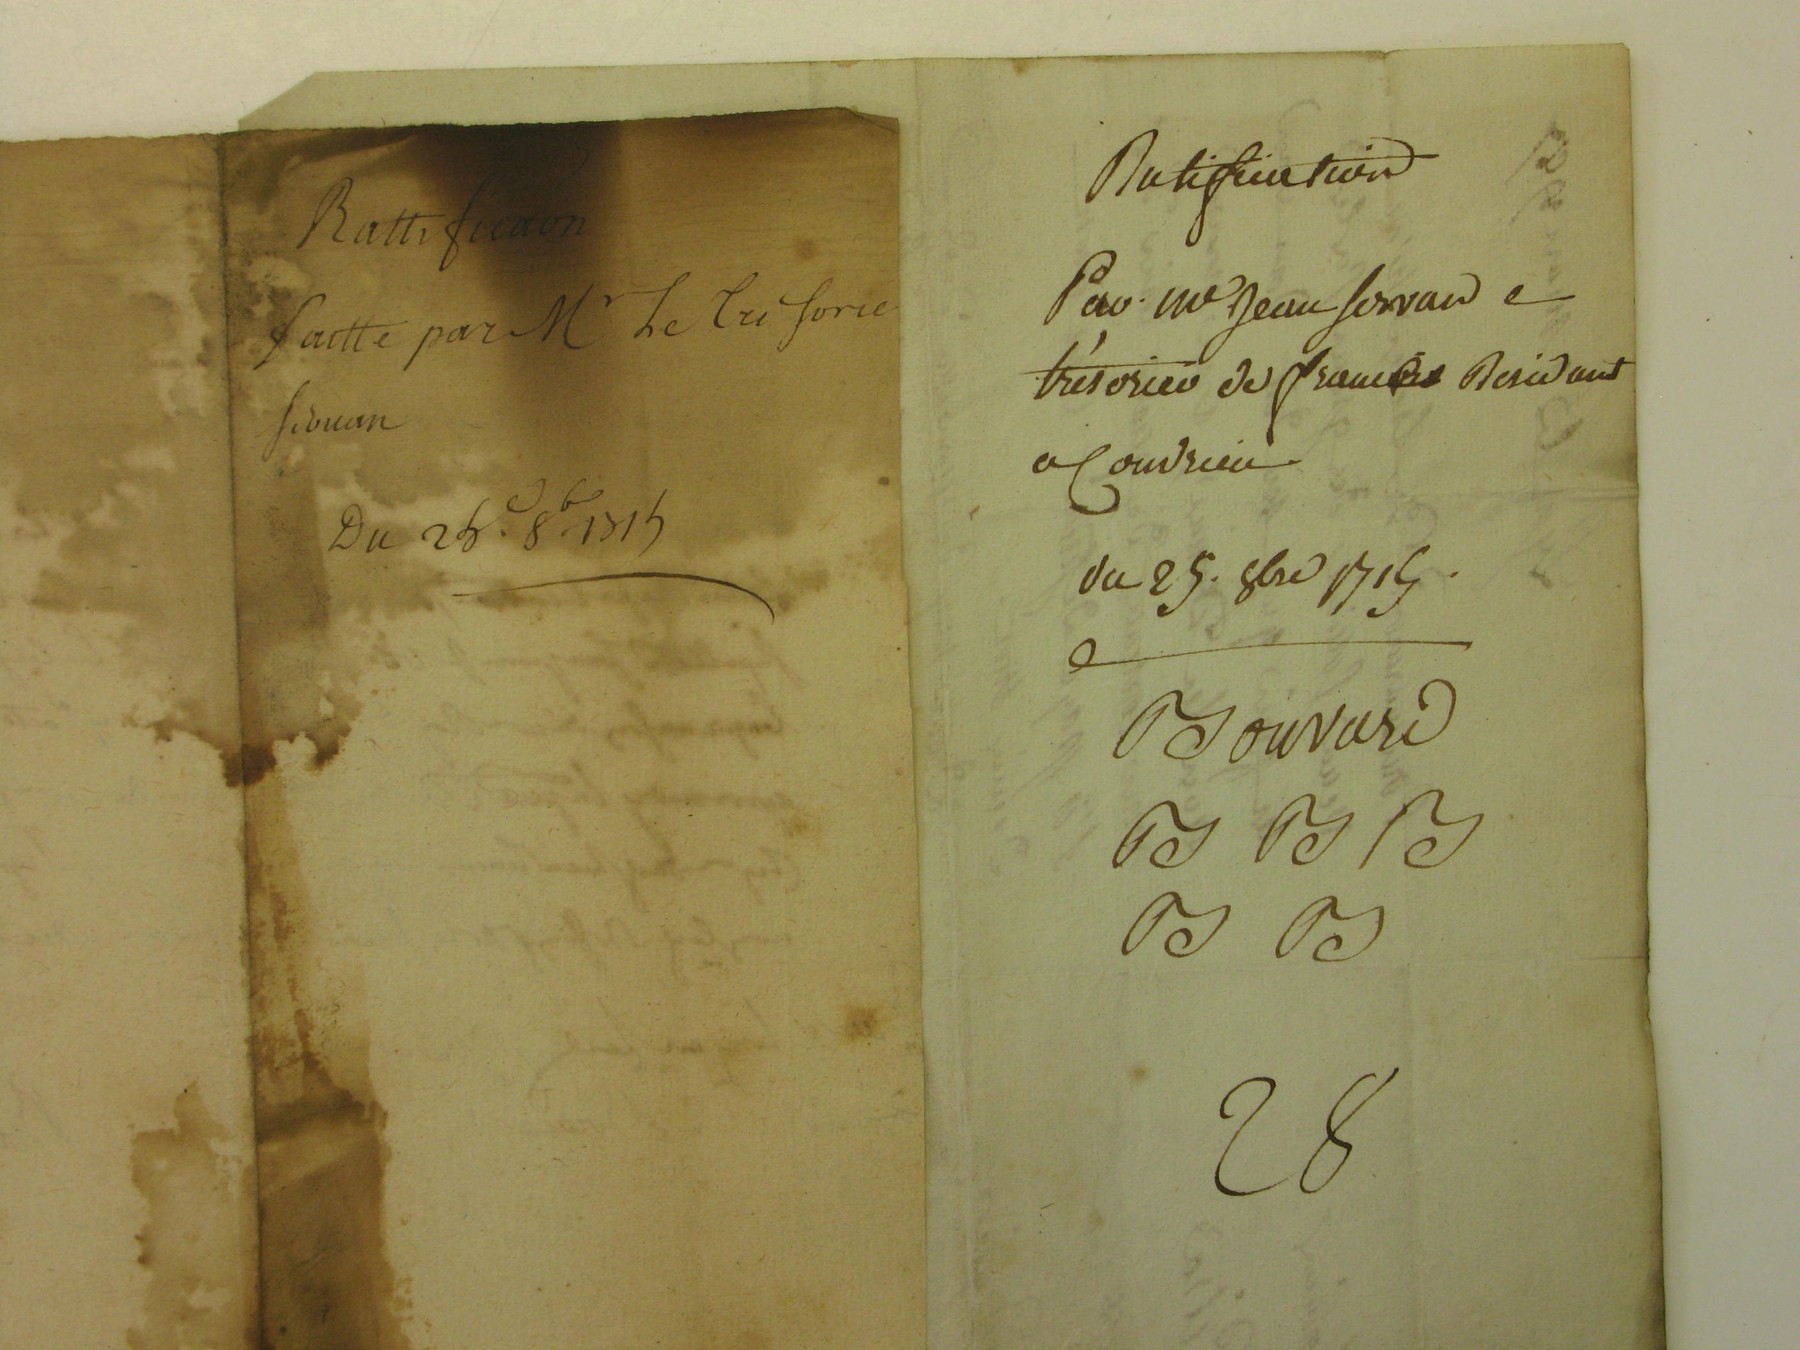 Rattificaon
faitte par Mr Le Tresorie
servan
Du 25e 8b 1715
Ratification
Par me Jean servan
trésorier de france Residant
a Condrieu
du 25. 8bre 1715.
Bouvard
B B B
B B
28